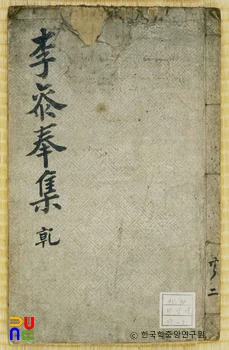 李參奉集 乾
共二
© 한국학중앙연구원